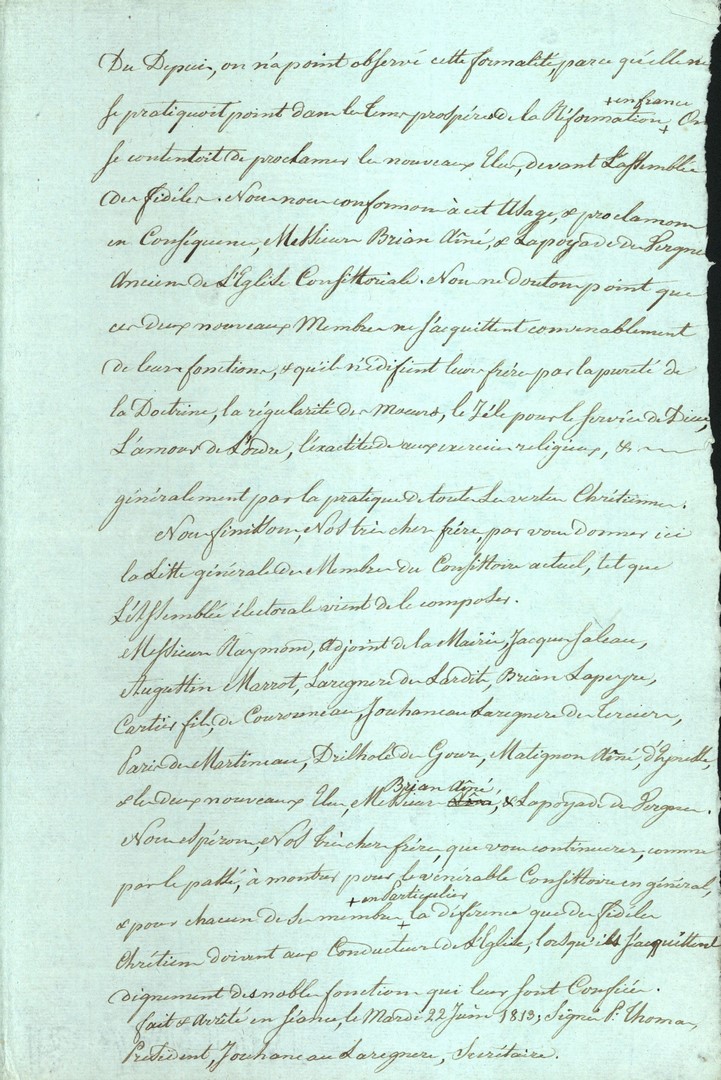 Du Depuis, on n'a point observé cette formalité, parce qu'elle ne
se pratiquoit point dans les tems prospères de la Réformation + en france + On
se contentoit de proclamer les nouveaux Elus, devant L'assemblée
des fidèles. Nous nous conformons à cet Usage, & proclamons
en Conséquence, Messieurs Brian Aîné, & Lapoyade du Vergne
Anciens de L'Eglise Consistoriale. Nous ne doutons point que
ces deux nouveaux Membres ne s'acquittent convenablement
de leurs fonctions, & qu'ils n'édifient leurs frères par la pureté de
la Doctrine, la régularité des Moeurs, le Zéle pour le Service de Dieu,
L'amour de L'ordre, l'éxactitude aux exercices religieux, &
généralement par la pratique de toutes les vertus Chrétiennes.
Nous finissons, Nos très chers frères, par vous donner ici
la Liste générale des Membres du Consistoire actuel, tel que
L'Assemblée électorale vient de le composer.
Messieurs Raymond, Adjoint de la Mairie, Jacques Saleau,
Augustin Marrot, Laregnere du Lardit, Brian Lapeyre,
Cartier fils, de Courouneau, Jouhaneau Laregnere du Terciere,
Paris du Martineau, Drilhole du Gour, Matignon Aîné, d'Eynesse,
& les deux nouveaux Elus, Messieurs Brian Aîné, & Lapoyade du Vergne.
Nous espérons, Nos très chers frères, que vous continuerez, comme
par le passé, à montrer pour le vénérable Consistoire en général,
& pour chacun de ses membres + en Particulier + la déférence que des fidèles
Chrétiens doivent aux Conducteurs de L'Eglise, lorsqu'ils s'acquittent
dignement des nobles fonctions qui leur sont Confiées.
fait & Arrêté en séance, le Mardi 22 Juin 1813; Signé P. Thomas,
Président, Jouhaneau Laregnere, Secrétaire.